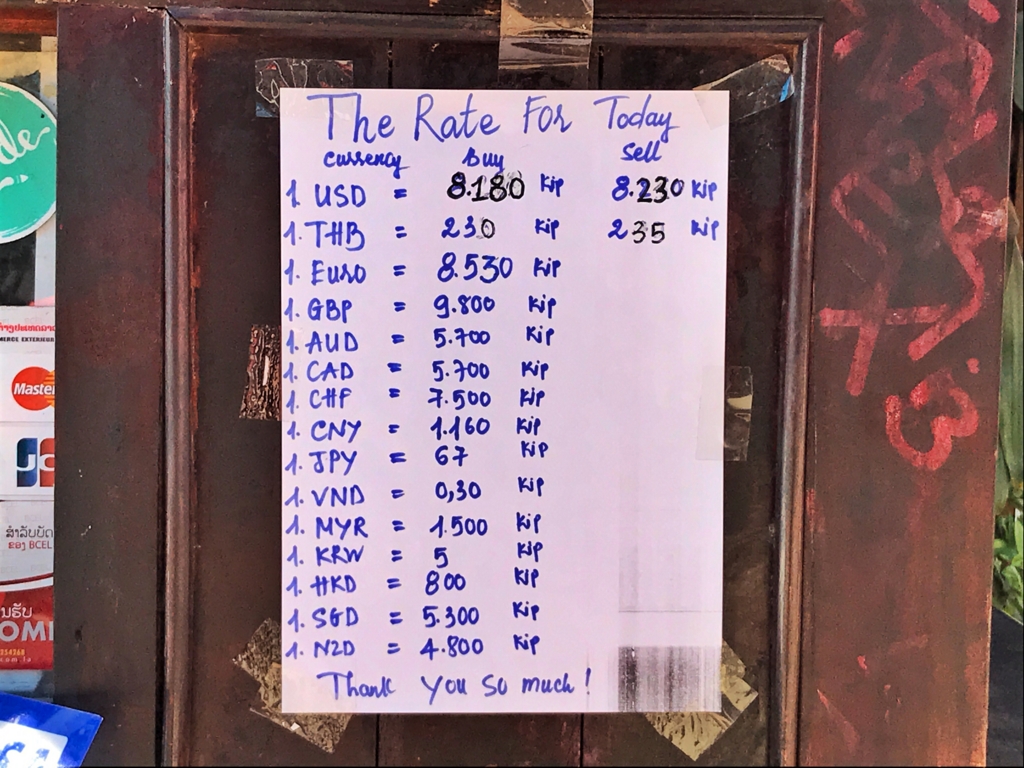 The Rate For Today
Currency Buy Sell
1. USD = 8.180 Kip 8.230 Kip
1. THB = 230 Kip 235 Kip
1. Euro = 8.530 Kip
1. GBP = 9.800 Kip
1. AUD = 5.700 Kip
1. CAD = 5.700 Kip
1. CHF = 7.500 Kip
1. CNY = 1.160 Kip
1. JPY = 67 Kip
1. VND = 0,30 Kip
1. MYR = 1.500 Kip
1. KRW = 5 Kip
1. HKD = 800 Kip
1. SGD = 5.300 Kip
1. NZD = 4.800 Kip
Thank you so much!
de
Master
JC
ສຳລັບບັດ
ຂອງ BCEL